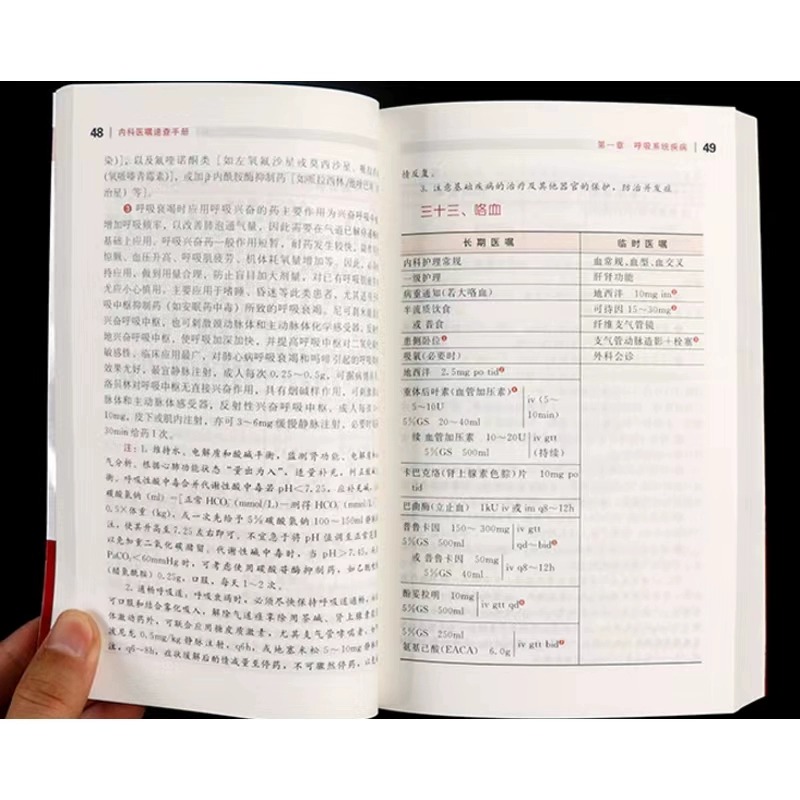 48 内科医嘱速查手册
染)]，以及氟喹诺酮类［如左氧氟沙星或莫西沙星、
(氨哌嗪青霉素)]，或加β-内酰胺酶抑制药［如哌拉西林/
星) 等]。
❸ 呼吸衰竭时应用呼吸兴奋的药主要作用为兴奋呼吸中枢
增加呼吸频率，以改善肺泡通气量，因此需要在气道已解
基础上应用，呼吸兴奋药一般作用短暂，耐药发生较快，
惊厥、血压升高、呼吸肌疲劳、机体耗氧量增加等。因此，
持应用，做到用量合理，防止盲目加大剂量，对已有呼吸肌
尤应小心慎用，主要应用于嗜睡、昏迷等此类患者，尤其适
吸中枢抑制药 (如安眠药中毒) 所致的呼吸衰竭。尼可刹
兴奋呼吸中枢，也可刺激颈动脉体和主动脉体化学感受器，反
地兴奋呼吸中枢，使呼吸加深加快，并提高呼吸中枢对二氧
敏感性。临床应用最广，对肺心病呼吸衰竭和吗啡引起的呼吸
效果尤好。最宜静脉注射，成人每次 0.25～0.5g，可根据病情
洛贝林对呼吸中枢无直接兴奋作用，具有烟碱样作用，可刺激
脉体和主动脉体感受器，反射性兴奋呼吸中枢。成人每次
10mg，皮下或肌内注射，亦可 3～6mg 缓慢静脉注射，必要时
30min 给药 1 次。
注：1. 维持水、电解质和酸碱平衡，监测肾功能、电解质和
气分析。根据心肺功能状态“量出为入”，适量补充，纠正
衡。呼吸性酸中毒合并代谢性酸中毒若 pH＜7.25，应补充
碳酸氢钠 (ml)＝[正常 HCO₃⁻ (mmol/L)－测得 HCO₃⁻ (mmol/L)]
0.5×体重 (kg)，或一次先给予 5%碳酸氢钠 100～150ml 静脉
注，使其升高至 7.25 左右即可，不宜急于将 pH 值调至正常
以免加重二氧化碳潴留。代谢性碱中毒时，当 pH＞7.45，
PaCO₂＜60mmHg 时，可考虑使用碳酸酐酶抑制药，如乙酰唑
(醋氮酰胺) 0.25g，口服，每天 1～2 次。
2. 通畅呼吸道：呼吸衰竭时，必须尽快保持呼吸道通畅，
可口服和结合雾化吸入，解除气道痉挛除用茶碱、肾上腺素
体激动药外，可联合应用糖皮质激素，尤其支气管哮喘者，
波尼龙 0.5mg/kg 静脉注射，q6h，或地塞米松 5～10mg 静脉
注，q6～8h，症状缓解后酌情减量至停药，不可骤然停药，以
第一章 呼吸系统疾病 49
情反复。
3. 注意基础疾病的治疗及其他器官的保护，防治并发症
三十三、咯血
长期医嘱 临时医嘱
内科护理常规 血常规、血型、血交叉
一级护理 肝肾功能
病重通知(若大咯血) 地西泮 10mg im❷
半流质饮食 可待因 15～30mg
或 普食 纤维支气管镜
患侧卧位❶ 支气管动脉造影＋栓塞
吸氧(必要时) 外科会诊
地西泮 2.5mg po tid❷
垂体后叶素(血管加压素)❹ iv (5～
5～10U 10min)
5%GS 20～40ml
续 血管加压素 10～20U iv gtt
5%GS 500ml (持续)
卡巴克洛(肾上腺素色腙)片 10mg po
tid
巴曲酶(立止血) 1kU iv 或 im q8～12h
普鲁卡因 150～300mg iv gtt
5%GS 500ml qd～bid
或 普鲁卡因 50mg iv q8～12h
5%GS 40ml
酚妥拉明 10mg iv gtt qd
5%GS 500ml
5%GS 250ml iv gtt bid
氨基己酸(EACA) 6.0g